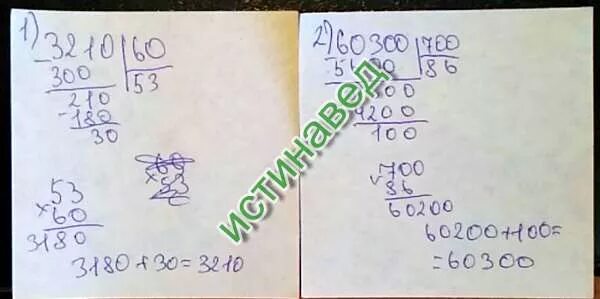 1) 3210 | 60
- 300 | 53
210
- 180
30
53
× 60
3180
3180+30=3210
2) 60300 | 700
86
4200
100
700
86
60200
60200+100=
=60300
ИСТИНАВЕД